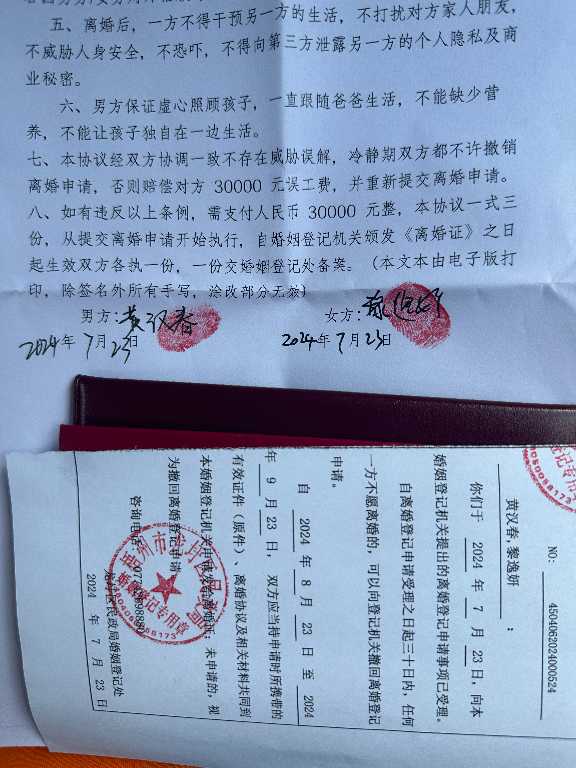 五、离婚后，一方不得干预另一方的生活，不打扰对方家人朋友，
不威胁人身安全，不恐吓，不得向第三方泄露另一方的个人隐私及商
业秘密。
六、男方保证虚心照顾孩子，一直跟随爸爸生活，不能缺少营
养，不能让孩子独自在一边生活。
七、本协议经双方协调一致不存在威胁误解，冷静期双方都不许撤销
离婚申请，否则赔偿对方 30000 元误工费，并重新提交离婚申请。
八、如有违反以上条例，需支付人民币 30000 元整，本协议一式三
份，从提交离婚申请开始执行，自婚姻登记机关颁发《离婚证》之日
起生效双方各执一份，一份交婚姻登记处备案。（本文本由电子版打
印，除签名外所有手写，涂改部分无效）
男方：黄汉春 女方：
2024年 7月23日 2024年 7月23日
NO: 4504062024000524
黄汉春，黎逸妍 ：
你们于 2024 年 7 月 23 日，向本
婚姻登记机关提出的离婚登记申请事项已受理。
自离婚登记申请受理之日起三十日内，任何
一方不愿离婚的，可以向登记机关撤回离婚登记
申请。
自 2024 年 8 月 23 日 至 2024
年 9 月 23 日，双方应当持申请时所携带的
有效证件（原件）、离婚协议及相关材料共同到
本婚姻登记机关申请发给离婚证；未申请的，视
为撤回离婚登记申请
咨询电话
民政局婚姻登记处
2024 年 7 月 23 日
婚姻登记专用章